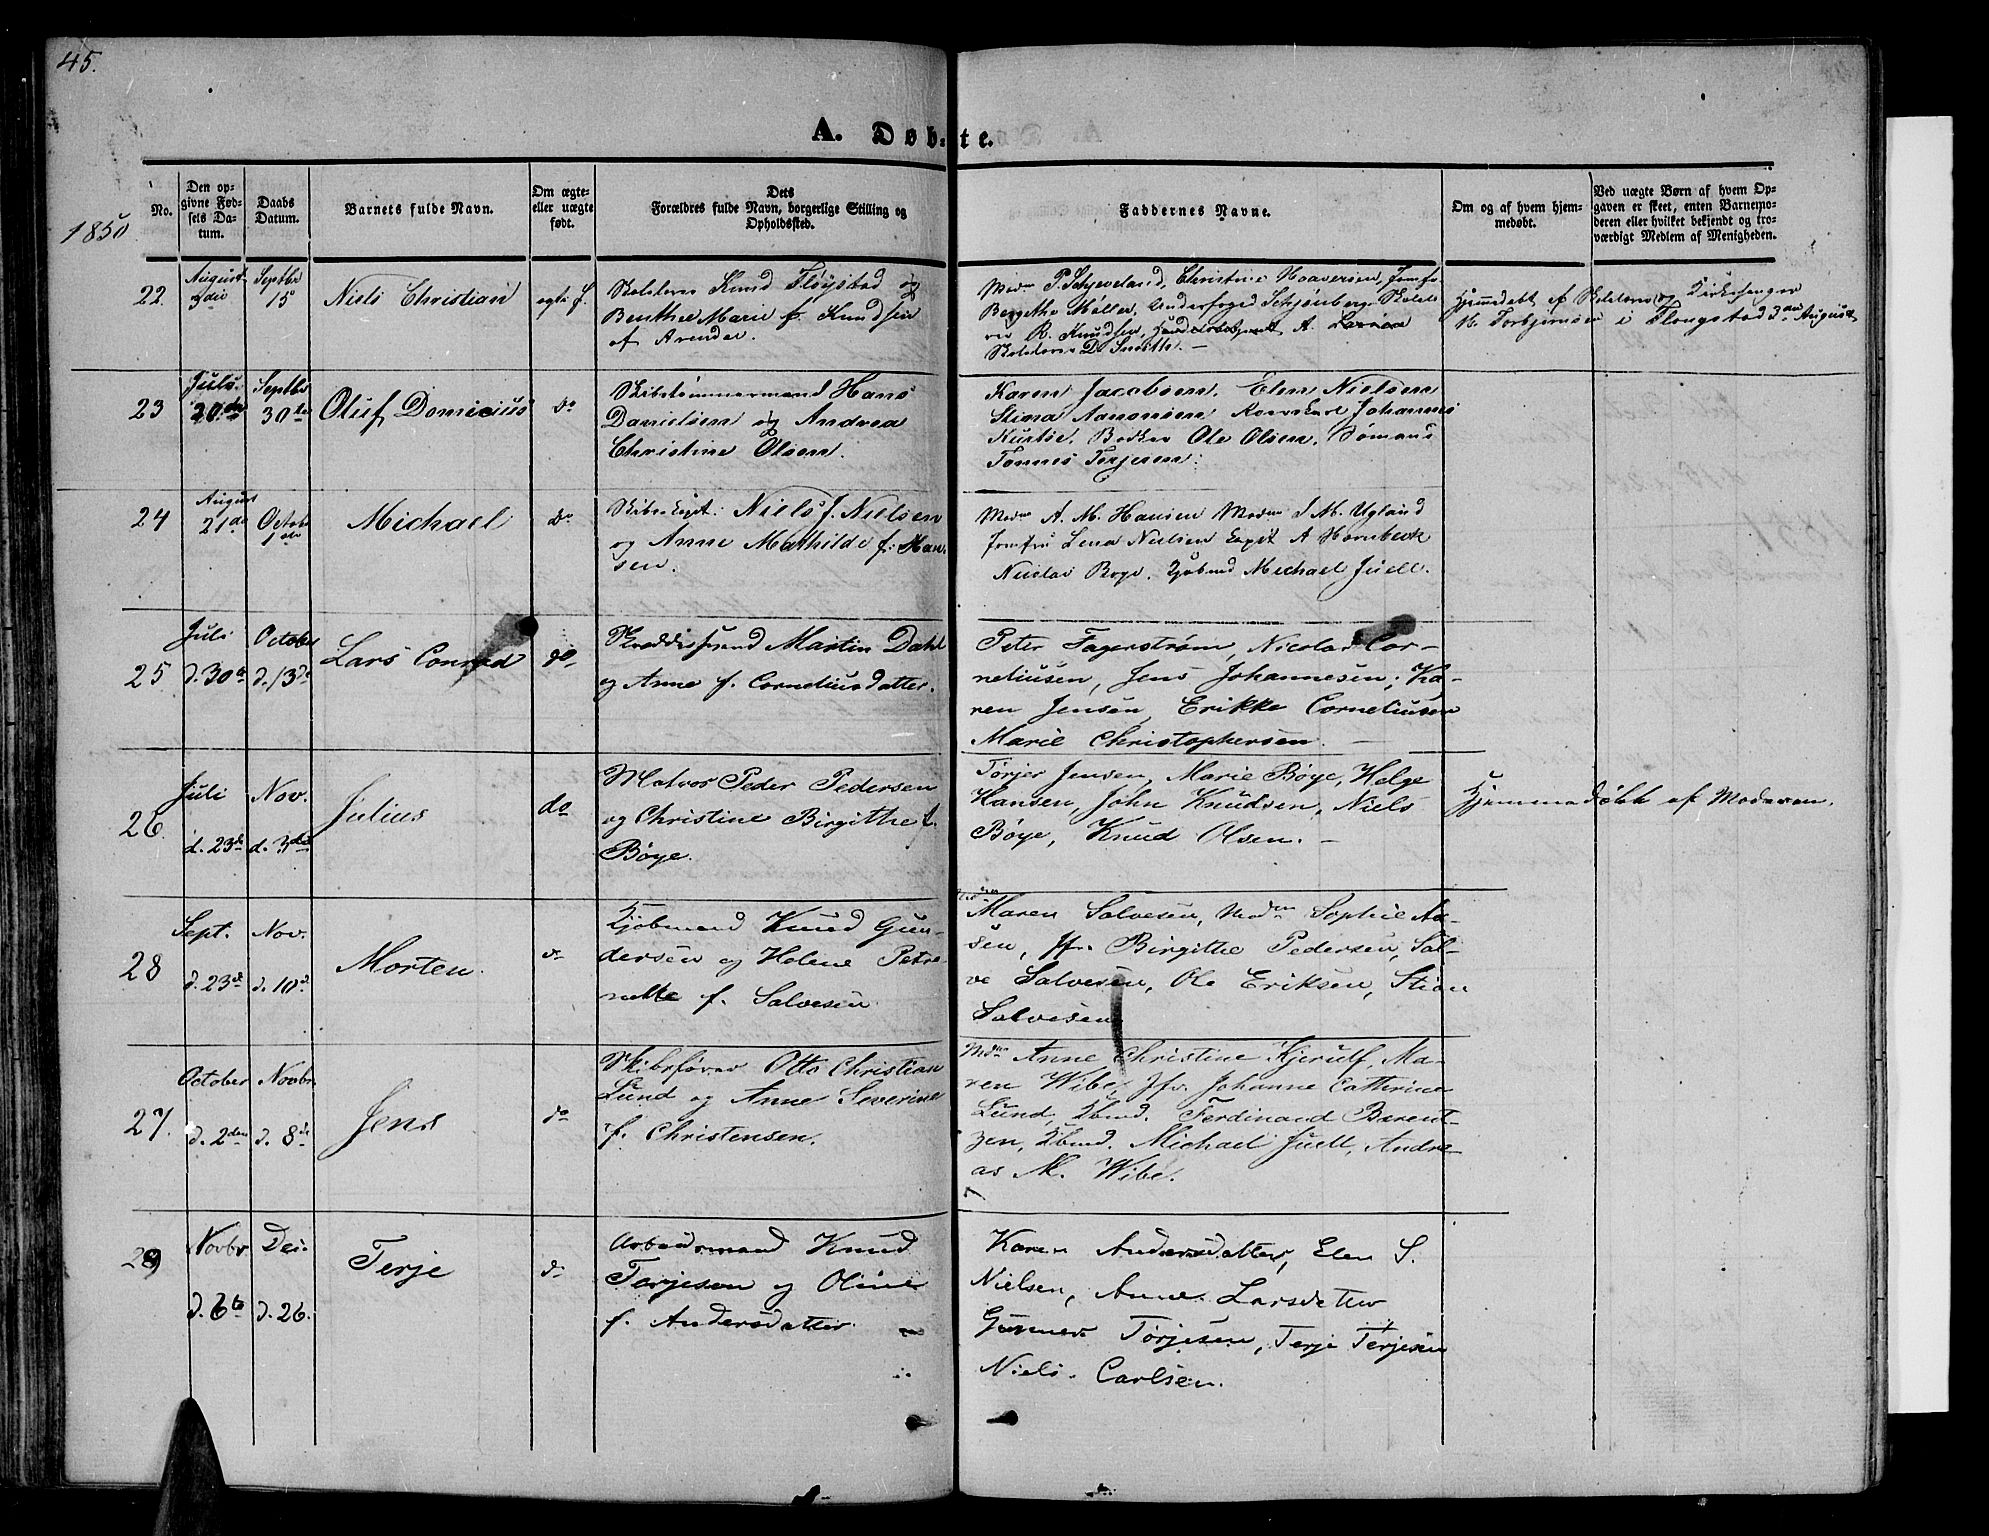 45.
A. Døb-te.
1850
No.
Den op-
givne Fød-
sels Da-
tum.
Daabs
Datum.
Barnets fulde Navn.
Om ægte-
eller uægte
født.
Dets
Forældres fulde Navn, borgerlige Stilling og
Opholdssted.
Faddernes Navne.
Om og af hvem hjem-
medøbt.
Ved uægte Børn af hvem Op-
gaven er skeet, enten Barnemo-
deren eller hvilket bekjendt og tro-
værdigt Medlem af Menigheden.
22.
August
3die
Septbr
15
Niels Christian
egte f.
Skolelærer Knud Fløystad og
Benthe Marie f. Knudsen
af Arendal.
Mdm P. Schjeveland, Christine Haaversen, Jomfr
Bergethe Møller, Underfoged Schjønberg, Skolelæ
rer R. Knudsen, A. Larsen
Skolelærer D. Smith.
Hjemmedøbt af Skolelærer og Kirkesanger
N. Torbjørnsen i Flougstad 3die August
23
Juli
20de
Septbr
30te
Oluf Domicius
do
Skibstømmermand Hans
Danielsen og Andrea
Christine Olsen.
Karen Jacobsen, Elen Nielsen
Stina Aanonsen Johannes
Bødker Ole Olsen, Sømand
Tønnes Terjesen.
24
August
21de
Octobr
1ste
Michael
do
Skibscapt: Niels J. Nielsen
og Anne Mathilde f. Han-
sen.
Mdm A. M. Hansen Mdm J. M. Ugland
Jomfru Lena Nielsen Capt A Hornbeck
Nicolai Boye. Kjøbmd Michael Juell.
25
Juli
d. 30te
October
d. 13de
Lars Conrad
do
Skræddersvend Martin Dahl
og Anne f. Corneliusdatter.
Peter Fagerstrøm, Nicolai Cor-
neliusen, Jens Johannesen, Ka-
ren Jensen, Erikke Corneliusen
Marie Christophersen.
26.
Juli
d. 23de
Nov.
d. 3die
Julius
do
Matros Peder Pedersen
og Christine Birgithe f.
Bøye.
Tørjer Jensen, Marie Bøye, Helge
Hansen, John Knudsen, Niels
Bøye, Knud Olsen.
Hjemmedøbt af Moderen.
28
Sept.
d. 23de
Nov.
d. 10de
Morten
do
Kjøbmand Knud Gun-
dersen og Helene Petre-
nelle f. Salvesen
Mdm Maren Salvesen, Mdm Sophie Aa-
sen, Jfr. Birgithe Pedersen, Sal-
ve Salvesen, Ole Eriksen, Stian
Salvesen
27.
October
d. 2den
Novbr
d. 8de
Jens
do
Skibsfører Otto Christian
Lund og Anne Severine
f. Christensen.
Mdm Anne Christine Kjerulf, Ma-
ren Wibe, Jfr. Johanne Cathrine
Lund, Kbmd. Ferdinand Barent-
zen, Kbmd. Michael Juell, Andre-
as M. Wibe.
29
Novbr
d. 6te
Dec.
d. 26.
Terje
do
Arbeidsmand Knud
Terjesen og Oline
f. Andersdatter
Karen Andersdatter, Elen S.
Nielsen, Anne Larsdatter
Gunner Tørjesen, Terje Terjesen
Niels Carlsen.